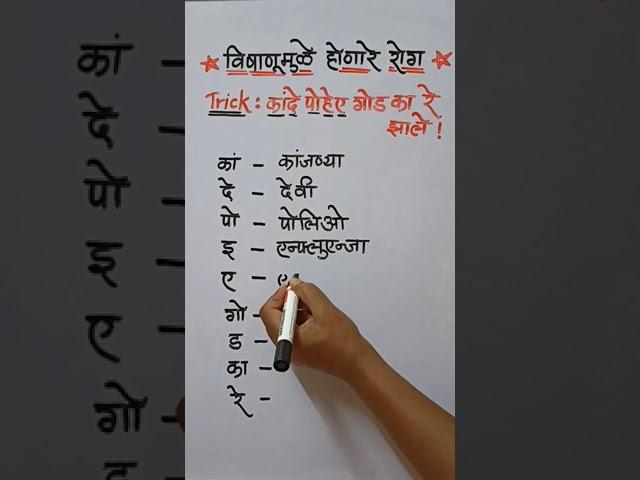 विषाणूमुळे होणारे रोग
Trick : कांदे पोहेए गोड का रे
झाले !
कां - कांजण्या
दे - देवी
पो - पोलिओ
इ - एन्फ्लुएन्जा
ए -
गो -
ड -
का -
रे -